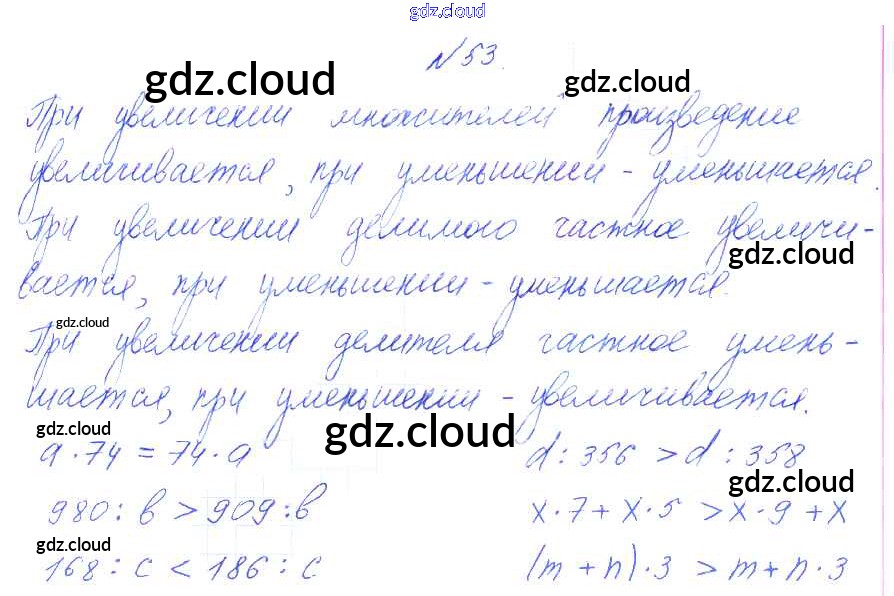 gdz.cloud
№53.
gdz.cloud gdz.cloud
При увеличении множителей произведение
увеличивается, при уменьшении - уменьшается.
При увеличении делимого частное увеличи-
gdz.cloud
вается, при уменьшении - уменьшается.
gdz.cloud
При увеличении делителя частное умень-
шается, при уменьшении - увеличивается.
gdz.cloud gdz.cloud
a · 74 = 74 · a d : 356 > d : 358
gdz.cloud
980 : b > 909 : b x · 7 + x · 5 > x · 9 + x
gdz.cloud gdz.cloud
168 : c < 186 : c (m + n) · 3 > m + n · 3